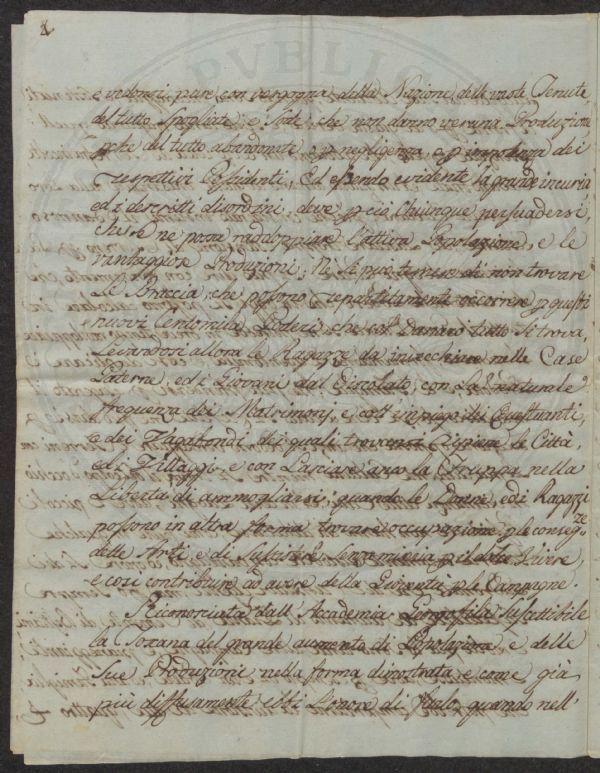 2
e vedonsi pure con vergogna della Nazione, delle vaste Tenute,
del tutto spogliate, e Sode, che non danno veruna Produzione
pche del tutto abandonate e p negligenza, e p impotenza dei
respettivi Possidenti; Ed essendo evidente la grande incuria
ed i descritti disordini, deve p ciò chiunque persuadersi,
che se ne possa raddoppiare l'attiva Popolazione, e le
vantaggiose Produzioni; Ne si può temere di non trovare
Le Braccia, che possono repartitamente occorrere p questi
nuovi Centomila Poderi, che col Danaro tutto si trova,
Levandosi allora le Ragazze da invecchiare nelle Case
Paterne, ed i Giovani dal Circolato, con La naturale
frequenza dei Matrimonj, e coll' impiego dei Questuanti,
e dei Vagabondi, dei quali trovonsi ripiene le Città,
ed i Villaggi, e con Lasciare anco la Truppa nella
Libertà di ammogliarsi; quando le Donne, ed i Ragazzi
possono in altra forma trovare occupazione p le conseg.ze
delle Arti, e di sussistere senza miseria p il dolce Vivere,
e così contribuire ad avere della Gioventù p le Campagne.
Riconosciuta dall' Accademia Gorgofila suscettibile
la Toscana del grande aumento di Popolazione, e delle
Sue Produzioni, nella forma dimostrata e come già
più diffusamente ebbi L'onore di farlo, quando nell'